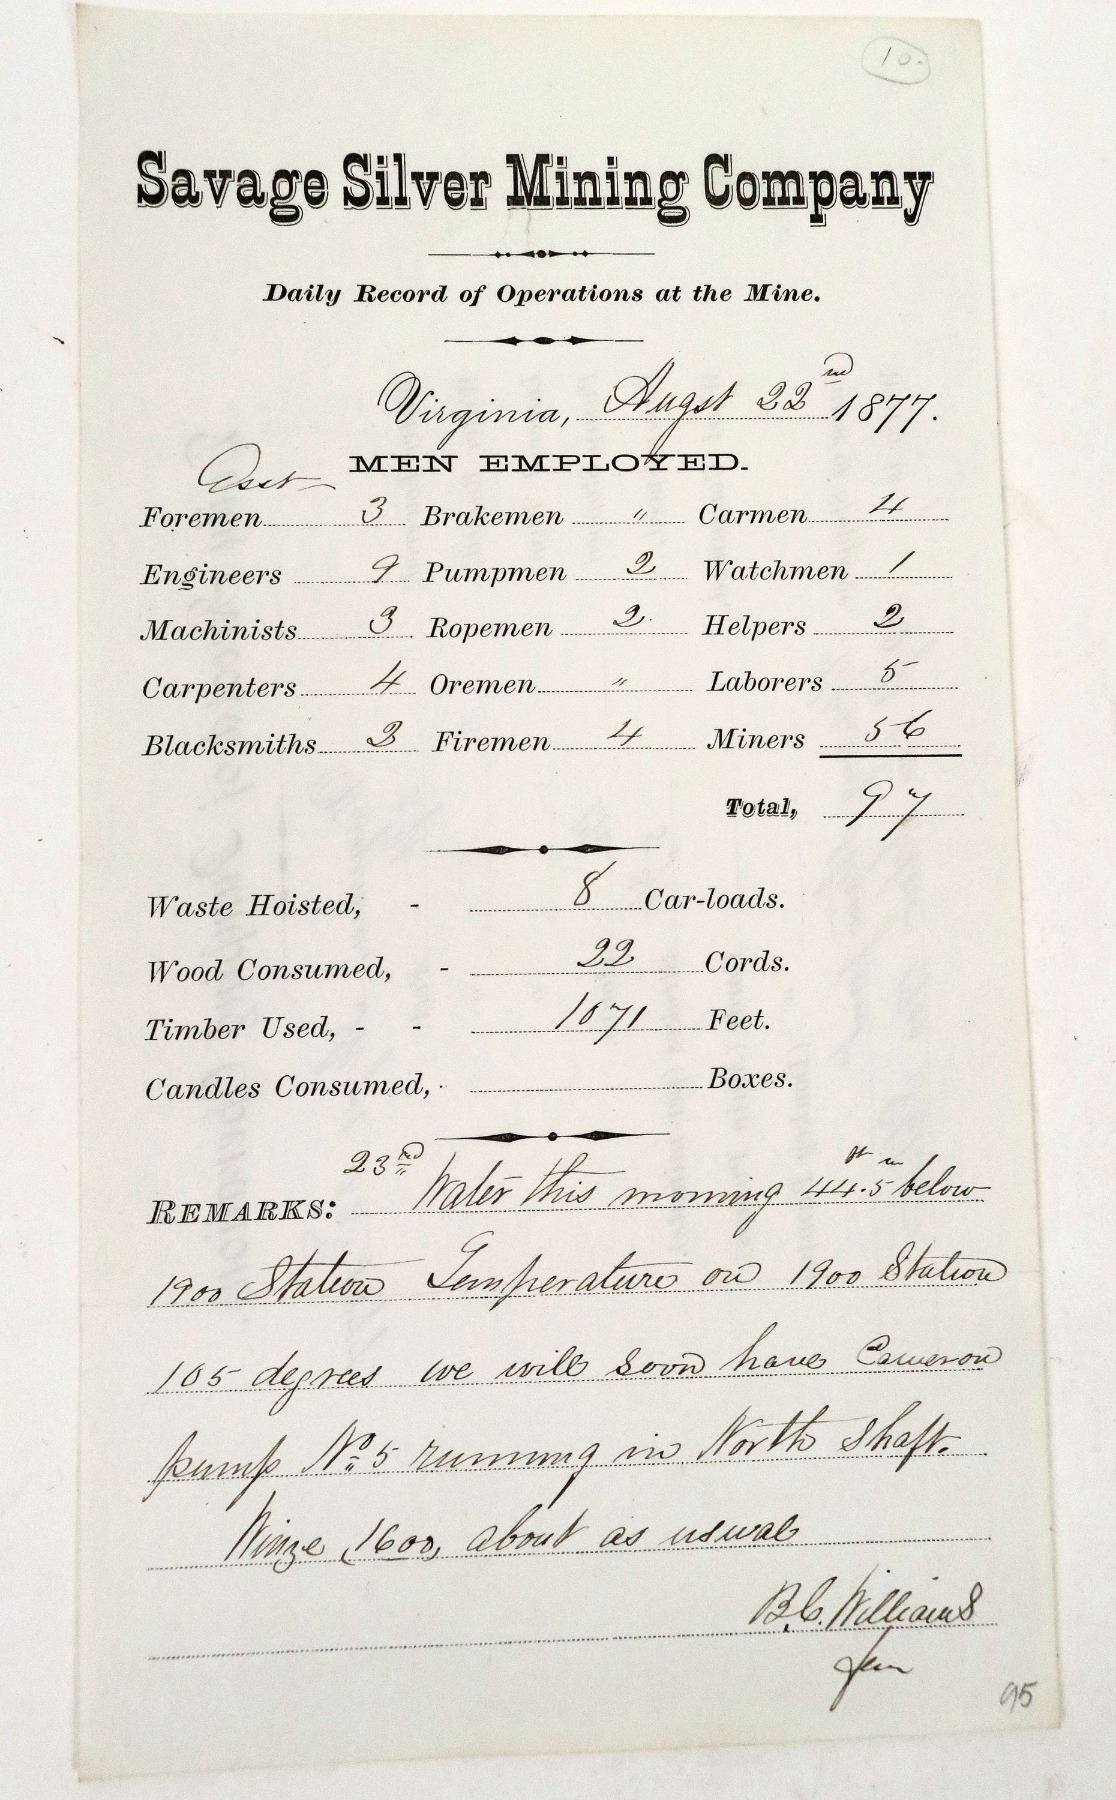 10.
Savage Silver Mining Company
Daily Record of Operations at the Mine.
Virginia, Augst 22nd 1877.
MEN EMPLOYED.
Asst
Foremen 3 Brakemen " Carmen 4
Engineers 9 Pumpmen 2 Watchmen 1
Machinists 3 Ropemen 2 Helpers 2
Carpenters 4 Oremen " Laborers 5
Blacksmiths 2 Firemen 4 Miners 56
Total, 97
Waste Hoisted, - 8 Car-loads.
Wood Consumed, - 22 Cords.
Timber Used, - - 1071 Feet.
Candles Consumed, - Boxes.
23rd
REMARKS: Water this morning 44ft.5in below
1900 Station Temperature on 1900 Station
105 degrees we will soon have Cameron
pump No 5 running in North Shaft.
Winze (1600) about as usual
B.C. Williams
95